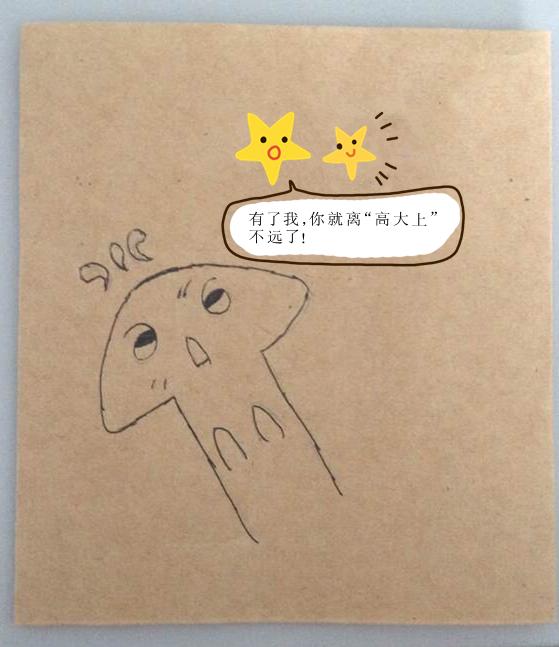 有了我,你就离“高大上”
不远了!